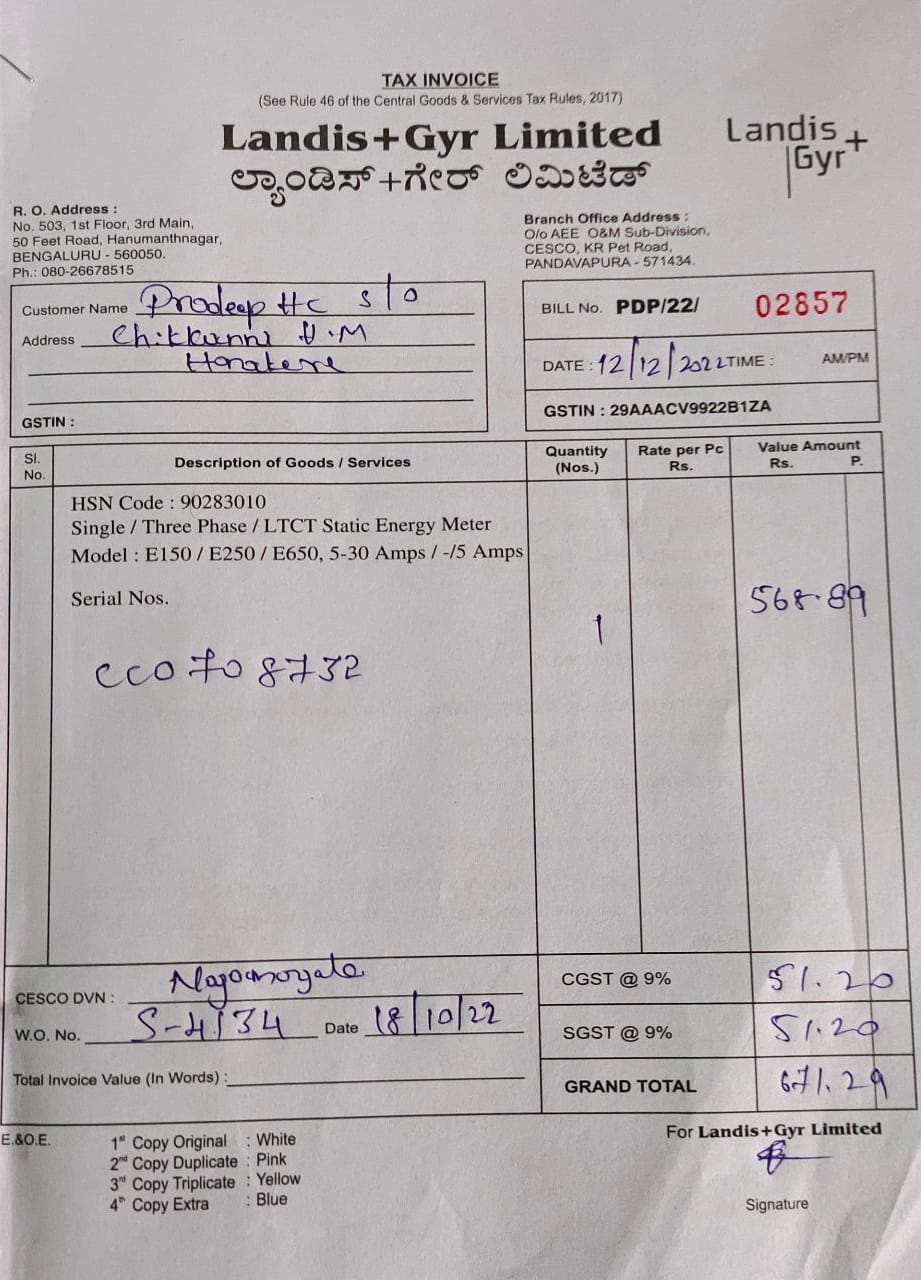 TAX INVOICE
(See Rule 46 of the Central Goods & Services Tax Rules, 2017)
Landis+Gyr Limited
ಲ್ಯಾಂಡಿಸ್+ಗೇರ್ ಲಿಮಿಟೆಡ್
Landis
Gyr+
R. O. Address :
No. 503, 1st Floor, 3rd Main,
50 Feet Road, Hanumanthnagar,
BENGALURU - 560050.
Ph.: 080-26678515
Branch Office Address :
O/o AEE O&M Sub-Division,
CESCO, KR Pet Road,
PANDAVAPURA - 571434.
Customer Name Pradeep HC s/o
Address H.M
GSTIN :
BILL No. PDP/22/ 02857
DATE : 12/12/2022 TIME : AM/PM
GSTIN : 29AAACV9922B1ZA
Sl. No. Description of Goods / Services Quantity (Nos.) Rate per Pc Rs. Value Amount Rs. P.
HSN Code : 90283010
Single / Three Phase / LTCT Static Energy Meter
Model : E150 / E250 / E650, 5-30 Amps / -/5 Amps
Serial Nos.
1 568.89
CC0708732
CESCO DVN :
W.O. No. S-4134 Date 18/10/22
Total Invoice Value (In Words) :
CGST @ 9% 51.20
SGST @ 9% 51.20
GRAND TOTAL 671.29
E.&O.E.
1st Copy Original : White
2nd Copy Duplicate : Pink
3rd Copy Triplicate : Yellow
4th Copy Extra : Blue
For Landis+Gyr Limited
Signature